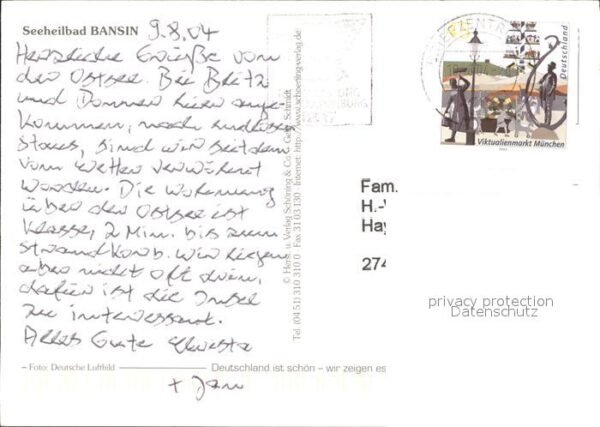 Seeheilbad BANSIN 9.8.04
Herzliche Grüße von
der Ostsee. Bei Blitz
und Donner hier ange-
kommen, nach endlosen
Staus, sind wir seitdem
vom Wetter verwöhnt
worden. Die Wohnung
über der Ostsee ist
Klasse, 2 Min. bis zum
Strandkorb. Wir liegen
aber nicht oft drin,
dafür ist die Insel
zu interessant.
Alles Gute
+ Jan
– Foto: Deutsche Luftbild
Deutschland ist schön – wir zeigen es
© Herst. u. Verlag Schöning & Co. + Gebrüder Schmidt
Tel. (04 51) 310 310 0 · Fax 31 03 130 · Internet: http://www.schoening-verlag.de
BRIEFZENTRUM
Deutschland
Viktualienmarkt München
Fam.
H.-
Hay
274
privacy protection
Datenschutz